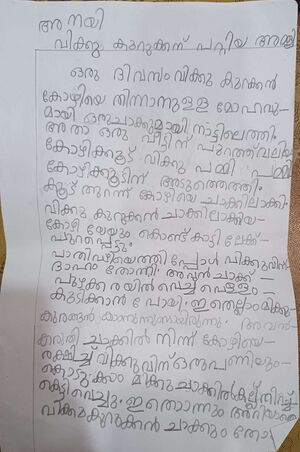 അനയി
വിക്കു കുറുക്കന് പറ്റിയ അമളി
ഒരു ദിവസം വിക്കു കുറുക്കൻ
കോഴിയെ തിന്നാനുള്ള മോഹവു-
മായി ഒരുചാക്കുമായി നാട്ടിലെത്തി.
അതാ ഒരു വീട്ടിന് പുറത്ത് വലിയ
കോഴിക്കൂട് വിക്കു പമ്മി പമ്മി
കോഴിക്കൂടിന് അടുത്തെത്തി.
കൂട് തുറന്ന് കോഴിയെ ചാക്കിലാക്കി.
വിക്കു കുറുക്കൻ ചാക്കിലാക്കിയ
കോഴിയേയും കൊണ്ട് കാട്ടിലേക്ക്
പുറപ്പെട്ടു.
പാതിവഴിയെത്തിപ്പോൾ വിക്കുവിന്
ദാഹം തോന്നി. അവൻ ചാക്ക്
പുഴക്കരയിൽ വെച്ച് വെള്ളം
കുടിക്കാൻ പോയി. ഇതെല്ലാം മിക്കു-
കുരങ്ങൻ കാണുന്നുണ്ടായിരുന്നു. അവൻ
കരുതി ചാക്കിൽ നിന്ന് കോഴിയെ-
രക്ഷിച്ച് വിക്കുവിന് ഒരുപണിയും-
കൊടുക്കാം മിക്കു ചാക്കിൽ കല്ല് നിറച്ച്
കെട്ടിവെച്ചു. ഇതൊന്നും അറിയാതെ
വിക്കുകുറുക്കൻ ചാക്കും തോ